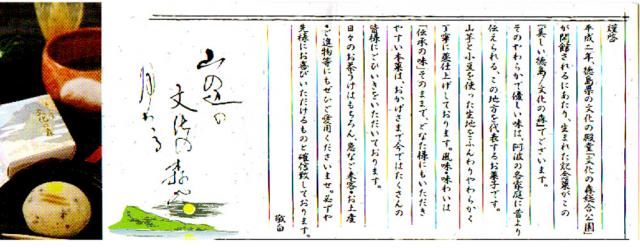 謹啓
平成二年、徳島県の文化の殿堂「文化の森総合公園」
が開館されるにあたり、生まれた記念菓がこの
「美しい徳島/文化の森」でございます。
そのやわらかで優しい味は、阿波の各家庭に昔より
伝えられる、この地方を代表するお菓子です。
山芋と小豆を使った生地をふんわりやわらかく
丁寧に蒸仕上げしております。風味・味わいは
「伝承の味」そのままで、どなた様にもいただき
やすい本菓は、おかげさまで今ではたくさんの
皆様にごひいきをいただいております。
日々のお茶うけはもちろん、急なご来客・お土産
・ご進物等にもぜひご愛用くださいませ。必ずや
先様にお喜びいただけるものと確信致しております。
敬白
山の辺の
文化の森に
月わたる